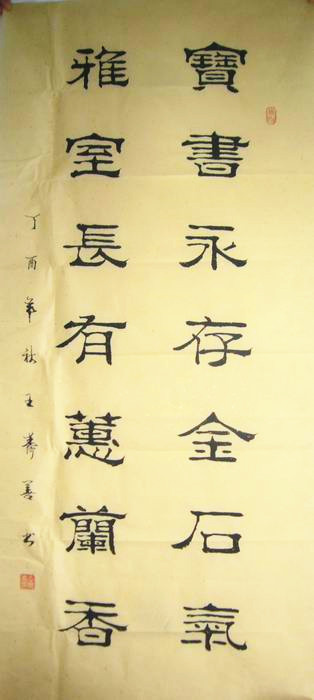 寶書永存金石氣
雅室長有蕙蘭香
丁酉年秋王善書